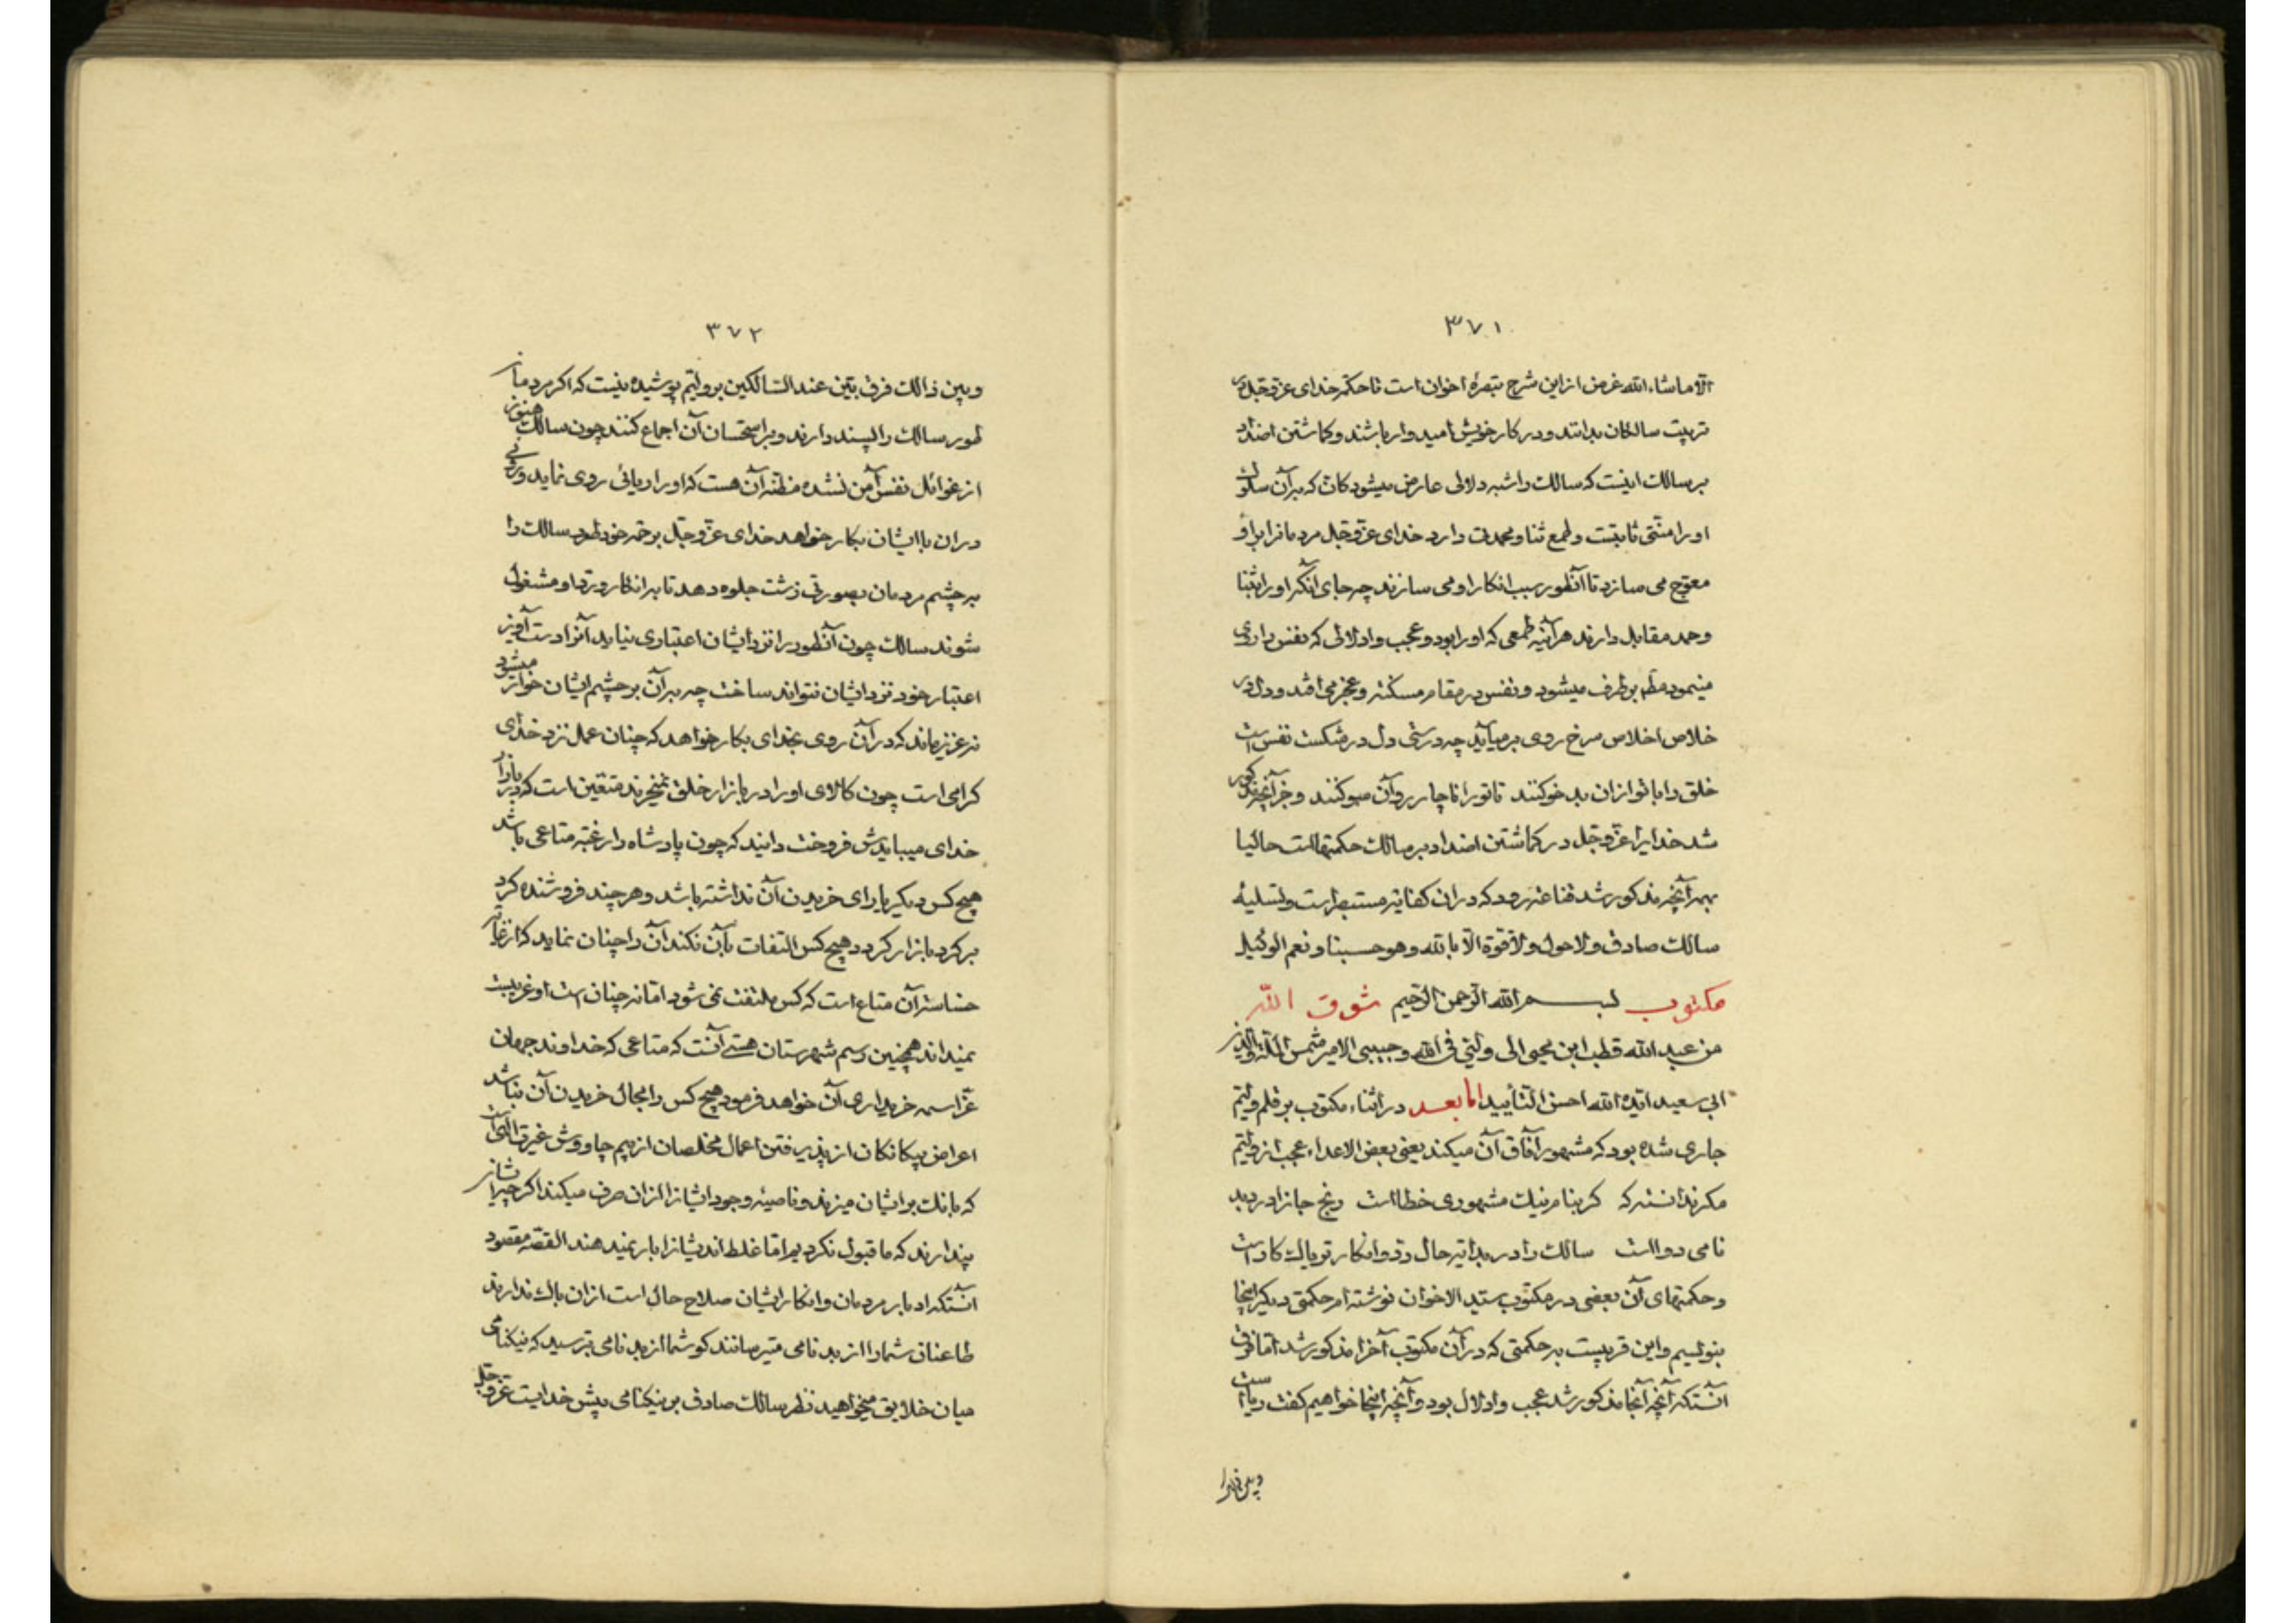 ۳۷۱
الا ماشاء الله غرض از این شرح تبصرهٔ اخوان است تا حکم خدای عز و جل در
تربیت سالکان بدانند و در کار خویش امیدوار باشند و کماشتن اضداد
بر سالک اینست که سالک را شبه دلالی عارض میشود کانّ که بر آن سلوک
او را منتی ثابتست و طمع ثنا و محمدتی دارد خدای عز و جل مردمانرا برو
معوّج می سازد تا آنطور سبب انکار او می سازند چه جای آنکه او را بثنا
و حمد مقابل دارند هر آینه طمعی که او را بود و عجب و ادلالی که نفس را روی
مینمود بر طرف میشود و نفس در مقام مسکنة و عجز می افتد و دل در
خلاص اخلاص سرخ روی بر میآید چه درستی دل در شکست نفس است
خلق را با تو از ان بد خو کنند تا تو را ناچار رو آن سو کنند و جز آنچه مذکور
شد خدایرا عز و جل در کماشتن اضداد بر سالک حکمتهاست حالیا
بهر آنچه مذکور شد قناعة رود که در ان کفایة مستبصراست و تسلیهٔ
سالک صادق و لا حول و لا قوة الا بالله و هو حسبنا و نعم الوکیل
مکتوب بسم الله الرحمن الرحیم شوق الله
من عبد الله قطب ابن محیی الی ولیّی فی الله و حبیبی الامیر شمس الملة والدین
ابی سعید ایّده الله احسن التأیید اما بعد در اثناء مکتوب بر قلم ولیّم
جاری شده بود که مشهور آفاق آن میکند یعنی بعض الاعداء عجب از ولیّم
مکر ندانسته که کر بنام نیک مشهوری خطااست رنج جانرا درد بد
نامی دوااست سالک را در بدایة حال ردّ و انکار تریاک کار است
و حکمتهای آن بعضی در مکتوب سید الاخوان نوشته ام حکمتی دیکر اینجا
بنویسیم و این قریبست بحکمتی که در آن مکتوب آخرا مذکور شد اما فرق
آنستکه آنچه آنجا مذکور شد عجب و ادلال بود و آنچه اینجا خواهیم گفت ریاست
و بین ذالک
۳۷۲
و بین ذالک فرق بیّن عند السّالکین بر ولیّم پوشیده نیست که اکر مردمان
طور سالک را پسند دارند و بر استحسان آن اجماع کنند چون سالک هنوز
از غوائل نفس آمن نشده مظنّه آن هست که او را ریائی روی نماید و رقی
در ان با ایشان بکار خواهد خدای عز و جل برحمة خود طور سالک را
بر چشم مردمان بصورتی زشت جلوه دهد تا بر انکار و ردّ او مشغول
شوند سالک چون آنطور را نزد ایشان اعتباری نیابد آنرا دست آویز
اعتبار خود نزد ایشان نتواند ساخت چه بر آن بر چشم ایشان خوارتر میشود
نه عزیز ماند که در آن روی بخدای بکار خواهد که چنان عمل نزد خدای
کرامی است چون کالای او را در بازار خلق نمیخرند متعین است که در بازار
خدای میبایدش فروخت دانید که چون پادشاه را رغبة متاعی باشد
هیچ کس دیکر یارای خریدن آن نداشته باشد و هر چند فروشنده کرد
بر کرد بازار کرد دهیچ کس التفات بآن نکند آن را چنان نماید که از غایة
خساسة آن متاع است که کس ملتفت نمی شود اما نه چنان است او غریبست
نمیداند همچنین رسم شهرستان هستی آنست که متاعی که خداوند جهان
عزّ اسمه خریداری آن خواهد فرمود هیچ کس را مجال خریدن آن نباشد
اعراض بیکانکان از پذیرفتن اعمال مخلصان از بیم چاووش غیرت الهی است
که بانک بر ایشان میزند و ناصیهٔ وجود ایشانرا از ان صرف میکند اکر چه ایشان
پندارند که ما قبول نکردیم اما غلط اند ایشانرا بار نمیدهند القصّه مقصود
آنستکه ادبار مردمان و انکار ایشان صلاح حال است از ان باک ندارید
طاعنان شما را از بد نامی میترسانند کو شما از بد نامی بترسید که نیکنامی
میان خلایق میخواهید نظر سالک صادق بر نیکنامی پیش خدایست عز و جل